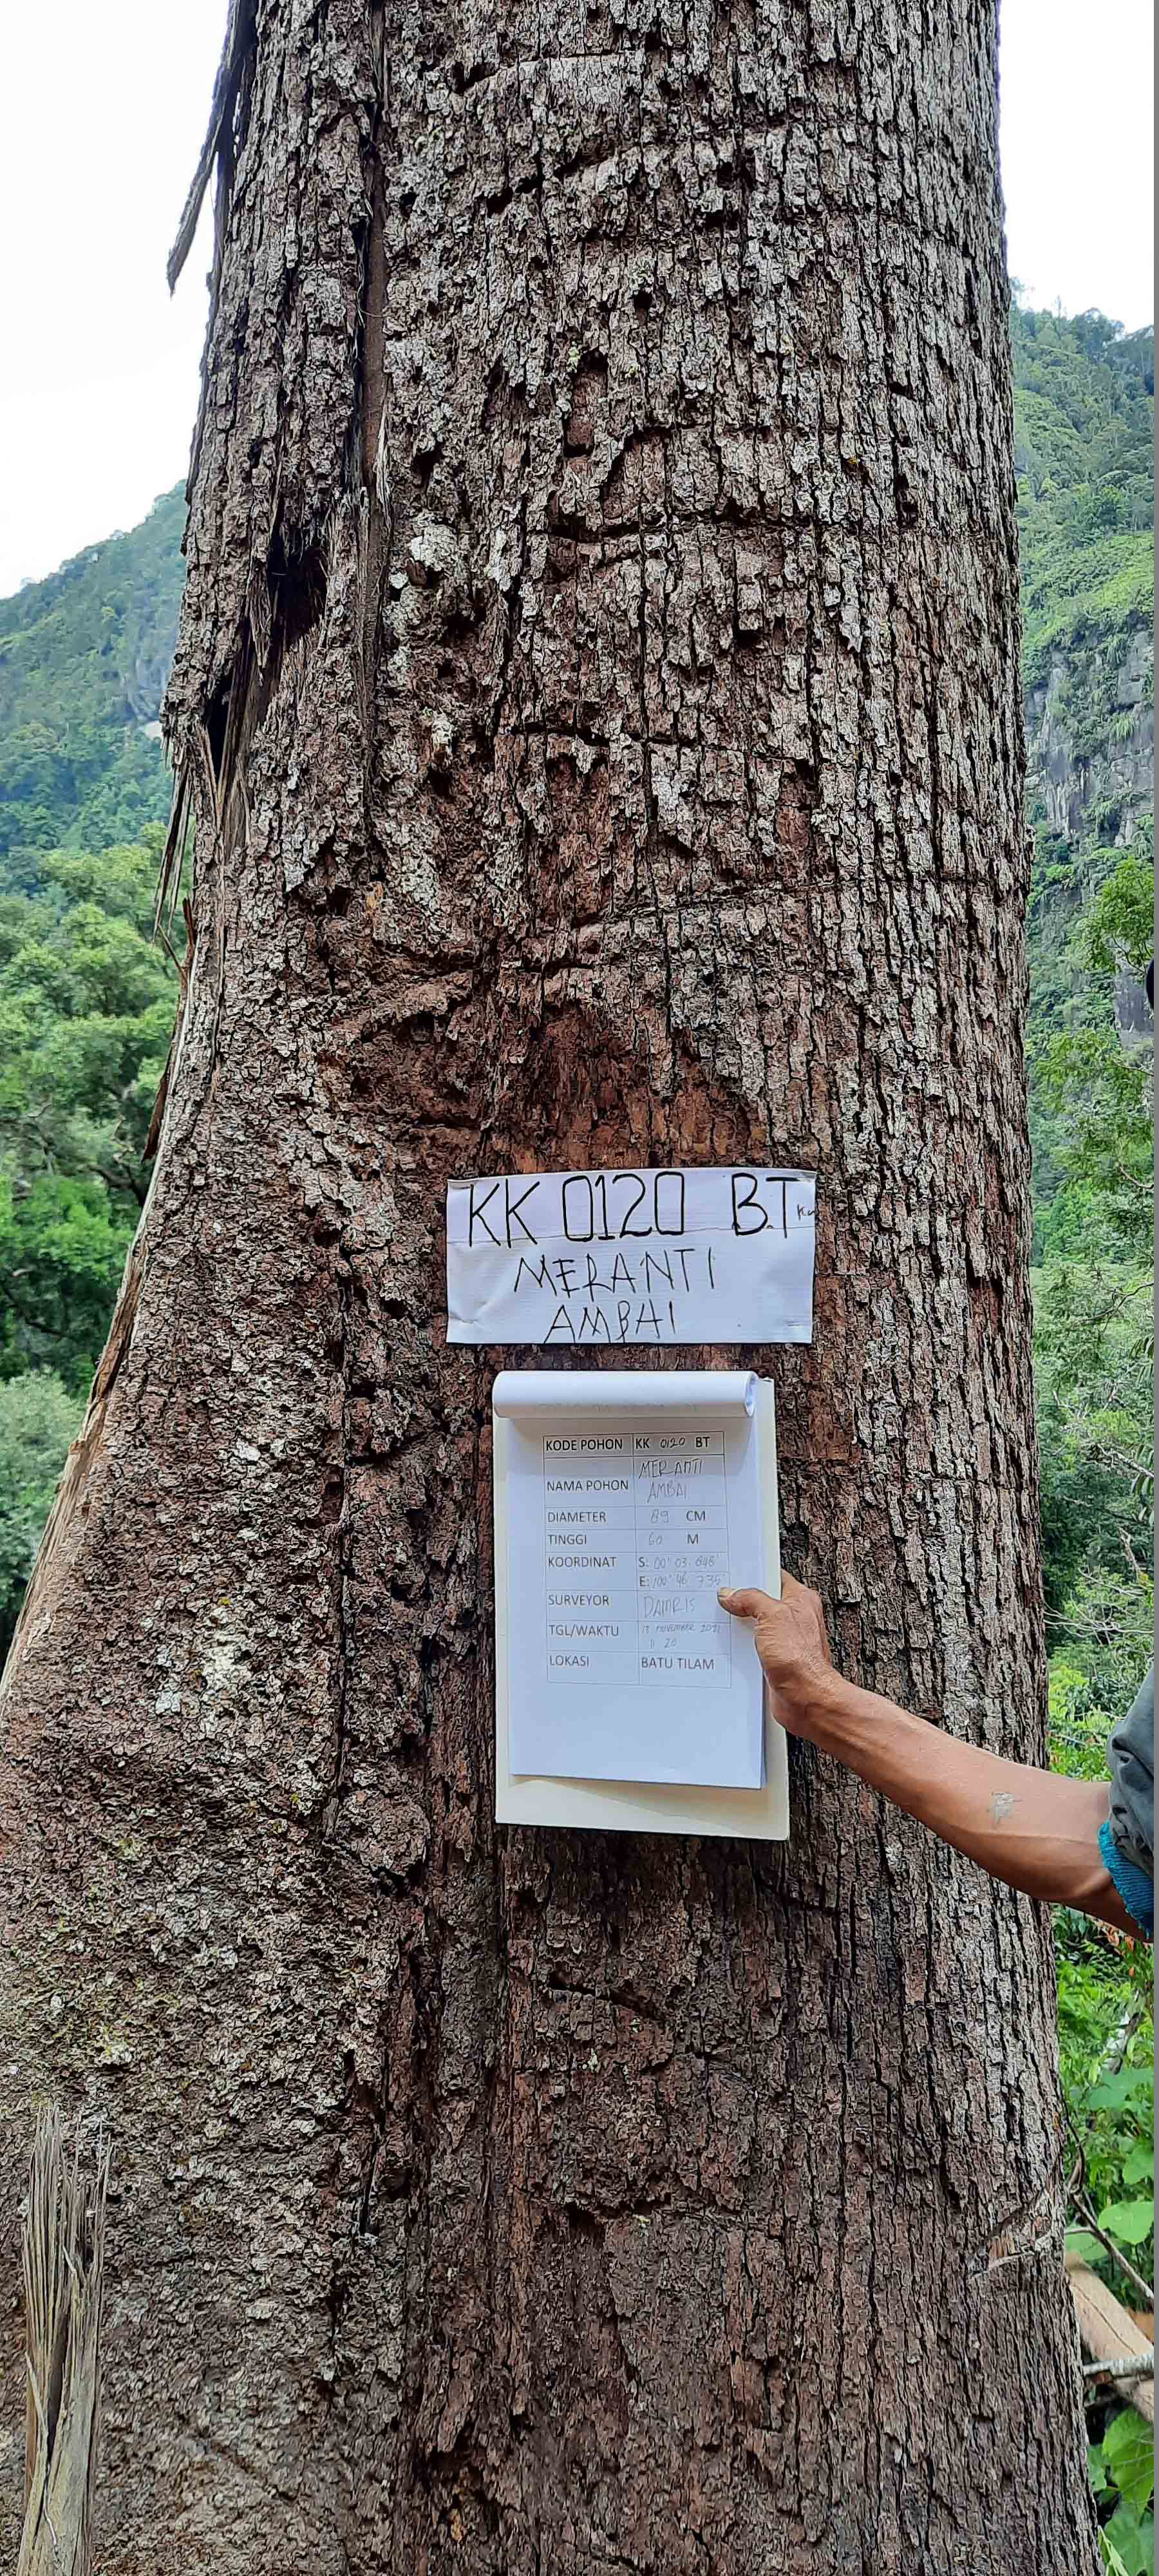 KK 0120 BT
MERANTI
AMBAI
KODE POHON KK 0120 BT
NAMA POHON MERANTI
AMBAI
DIAMETER 89 CM
TINGGI 60 M
KOORDINAT S: 00° 03. 848'
E: 100° 46. 735'
SURVEYOR DAMRIS
TGL/WAKTU 13 NOVEMBER 2021
11 20
LOKASI BATU TILAM